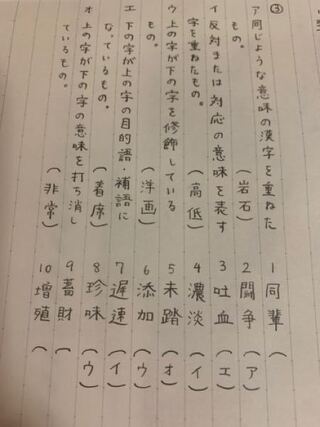 ③
ア 同じような意味の漢字を重ねた
もの。 (岩石)
イ 反対または対応の意味を表す
字を重ねたもの。 (高低)
ウ 上の字が下の字を修飾している
もの。 (洋画)
エ 下の字が上の字の目的語・補語に
なっているもの。 (着席)
オ 上の字が下の字の意味を打ち消し
ているもの。 (非常)
1 同輩 ( )
2 闘争 (ア)
3 吐血 (エ)
4 濃淡 (イ)
5 未踏 (オ)
6 添加 (ウ)
7 遅速 (イ)
8 珍味 (ウ)
9 蓄財 (
10 増殖 (